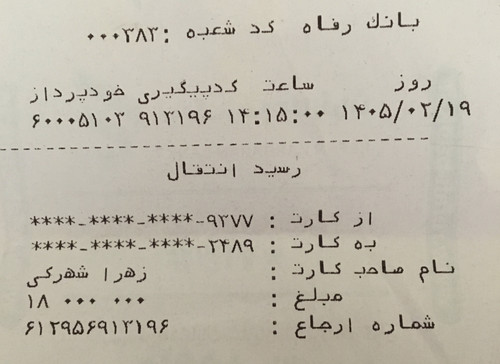 بانك رفاه كد شعبه :۰۰۰۳۸۳
روز ساعت كدپيگيري خودپرداز
۱۴۰۵/۰۲/۱۹ ۱۴:۱۵:۰۰ ۹۱۳۱۹۶ ۶۰۰۰۵۱۰۳
رسيد انتقال
از كارت : ۹۳۷۷-****-****-****
به كارت : ۲۴۸۹-****-****-****
نام صاحب كارت : زهرا شهركي
مبلغ : ۱۸ ۰۰۰ ۰۰۰
شماره ارجاع : ۶۱۲۹۵۶۹۱۳۱۹۶